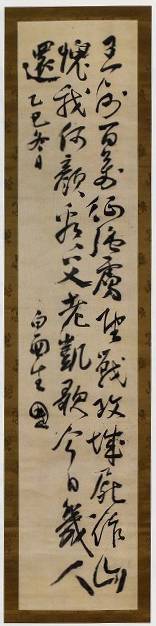 王師百萬征強虜野戰攻城屍作山
愧我何顏看父老凱歌今日幾人
還 乙巳冬日
白面生